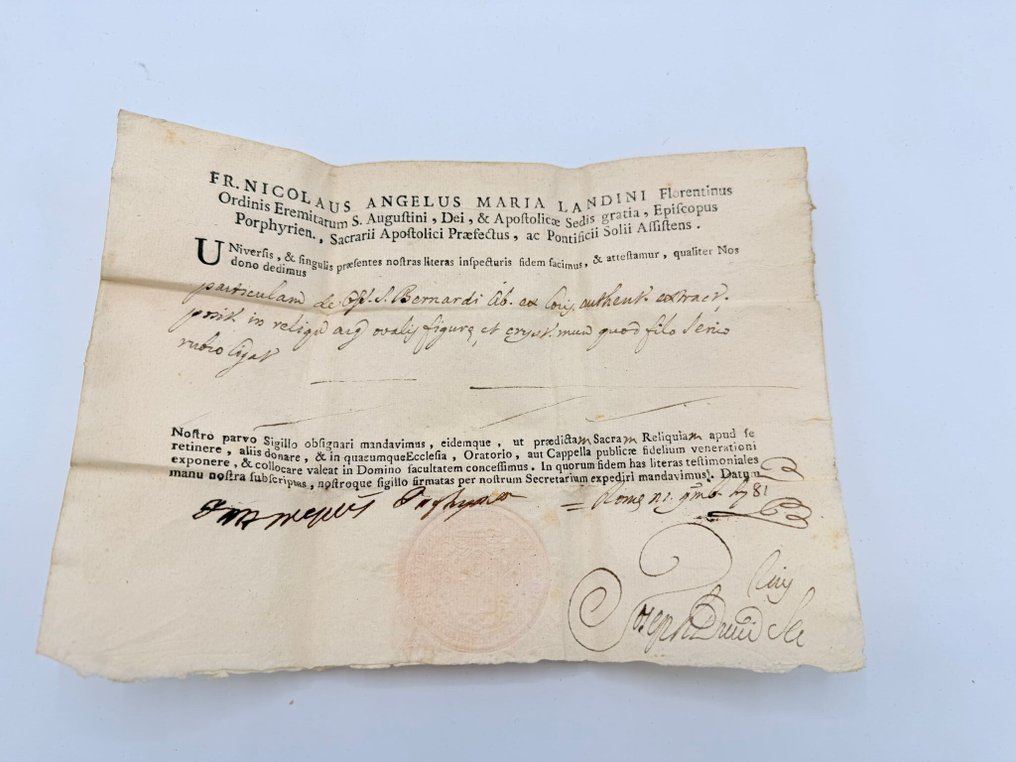 FR. NICOLAUS ANGELUS MARIA LANDINI Florentinus
Ordinis Eremitarum S. Augustini, Dei, & Apostolicæ Sedis gratia, Episcopus
Porphyrien., Sacrarii Apostolici Præfectus, ac Pontificii Solii Assistens.
UNiversis, & singulis præsentes nostras literas inspecturis fidem facimus, & attestamur, qualiter Nos
dono dedimus
particulam de S. Bernardi Ab. ex authent. extract.
posit. in reliqu ovalis figuræ, et cryst. mun quod filo serico
rubro ligat
Nostro parvo Sigillo obsignari mandavimus, eidemque, ut prædictam Sacram Reliquiam apud se
retinere, aliis donare, & in quacumque Ecclesia, Oratorio, aut Cappella publicæ fidelium venerationi
exponere, & collocare valeat in Domino facultatem concessimus. In quorum fidem has literas testimoniales
manu nostra subscriptas, nostroque sigillo firmatas per nostrum Secretarium expediri mandavimus. Datum
Romæ 1781
Joseph